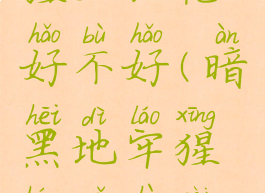 hǎo bù hǎo àn
好不好(暗
hēi dì láo xīng
黑地牢猩